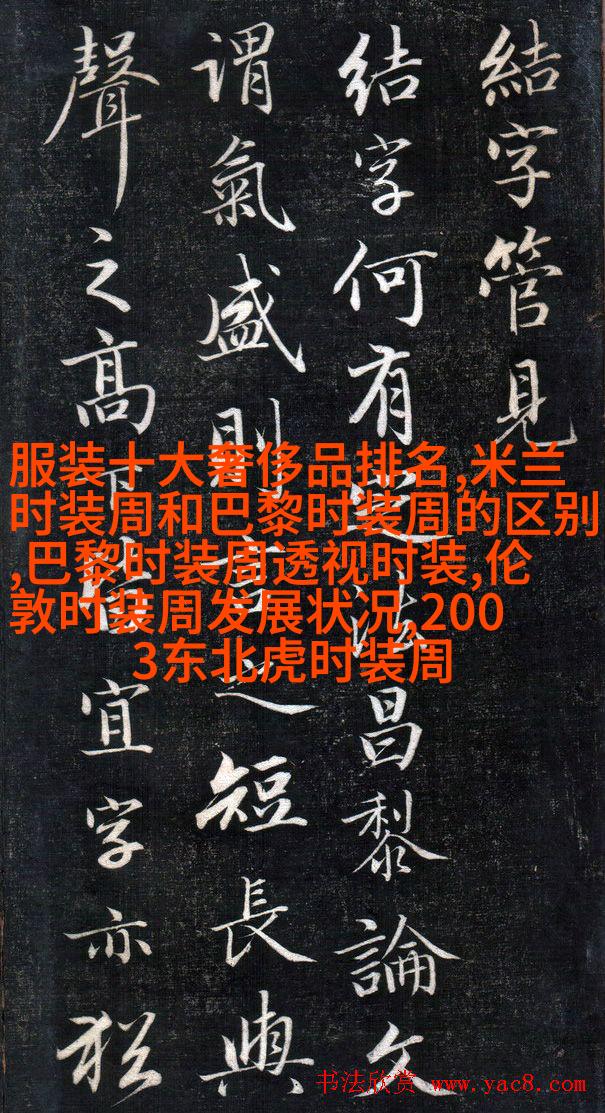 結字管見
结字何有定法昌黎論文
謂氣盛則言之短長與
聲之高下皆宜字亦猶
服装十大奢侈品排名,米兰
时装周和巴黎时装周的区别
,巴黎时装周透视时装,伦
敦时装周发展状况,200
3东北虎时装周
书法欣赏 www.yac8.com